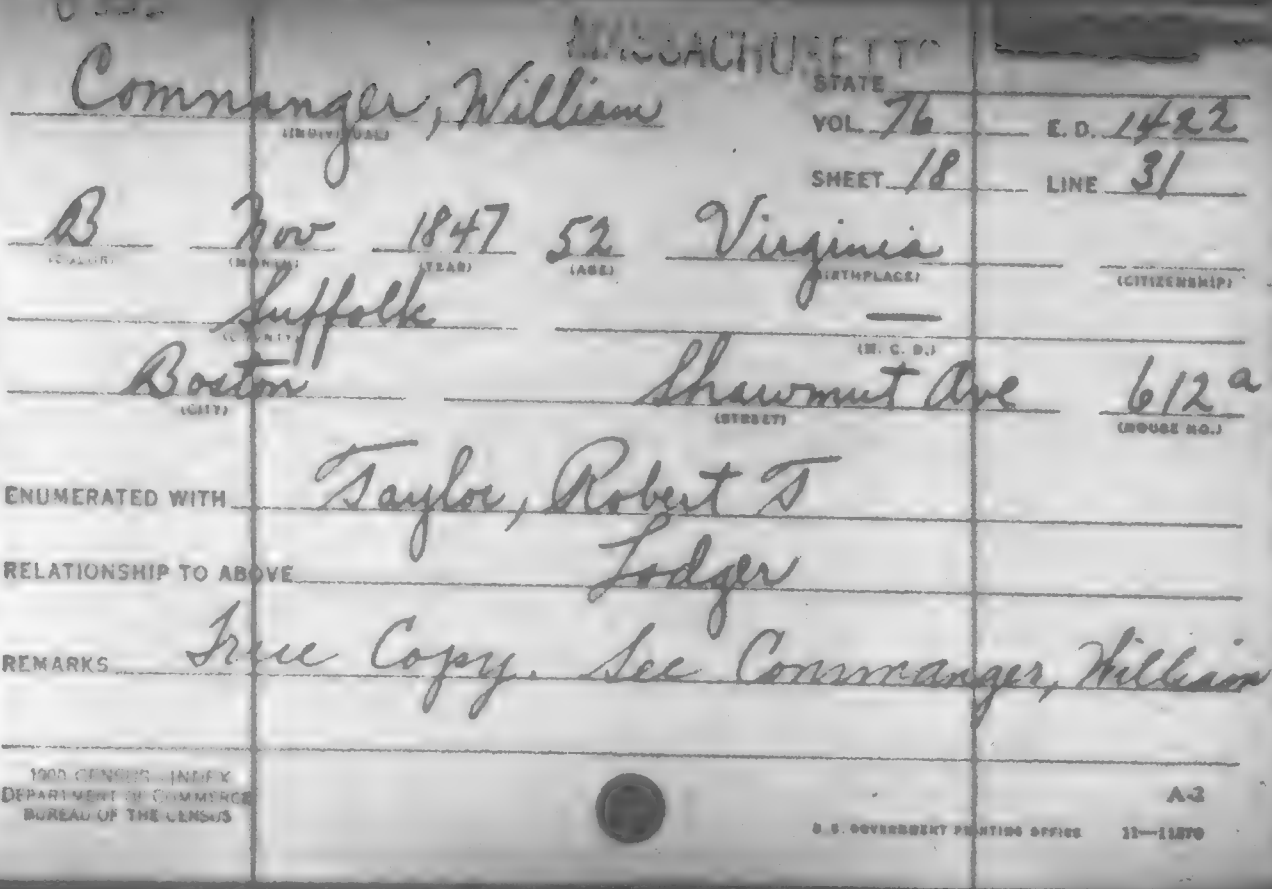 MASSACHUSETTS
STATE
Comnanger, William
(INDIVIDUAL)
VOL. 76 E. D. 1422
SHEET 18 LINE 31
B Nov 1847 52 Virginia
(COLOR) (MONTH) (YEAR) (AGE) (BIRTHPLACE) (CITIZENSHIP)
Suffolk —
(COUNTY) (M. C. D.)
Boston Shawmut Ave 612 a
(CITY) (STREET) (HOUSE NO.)
ENUMERATED WITH Taylor, Robert T
RELATIONSHIP TO ABOVE Lodger
REMARKS True Copy. See Commanger, William
1900 CENSUS—INDEX
DEPARTMENT OF COMMERCE
BUREAU OF THE CENSUS
A-2
U. S. GOVERNMENT PRINTING OFFICE 11—11870